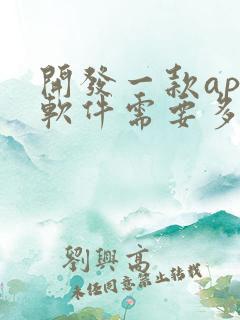 開發一款ap
軟件需要多
劉興高
未經同意禁止轉載